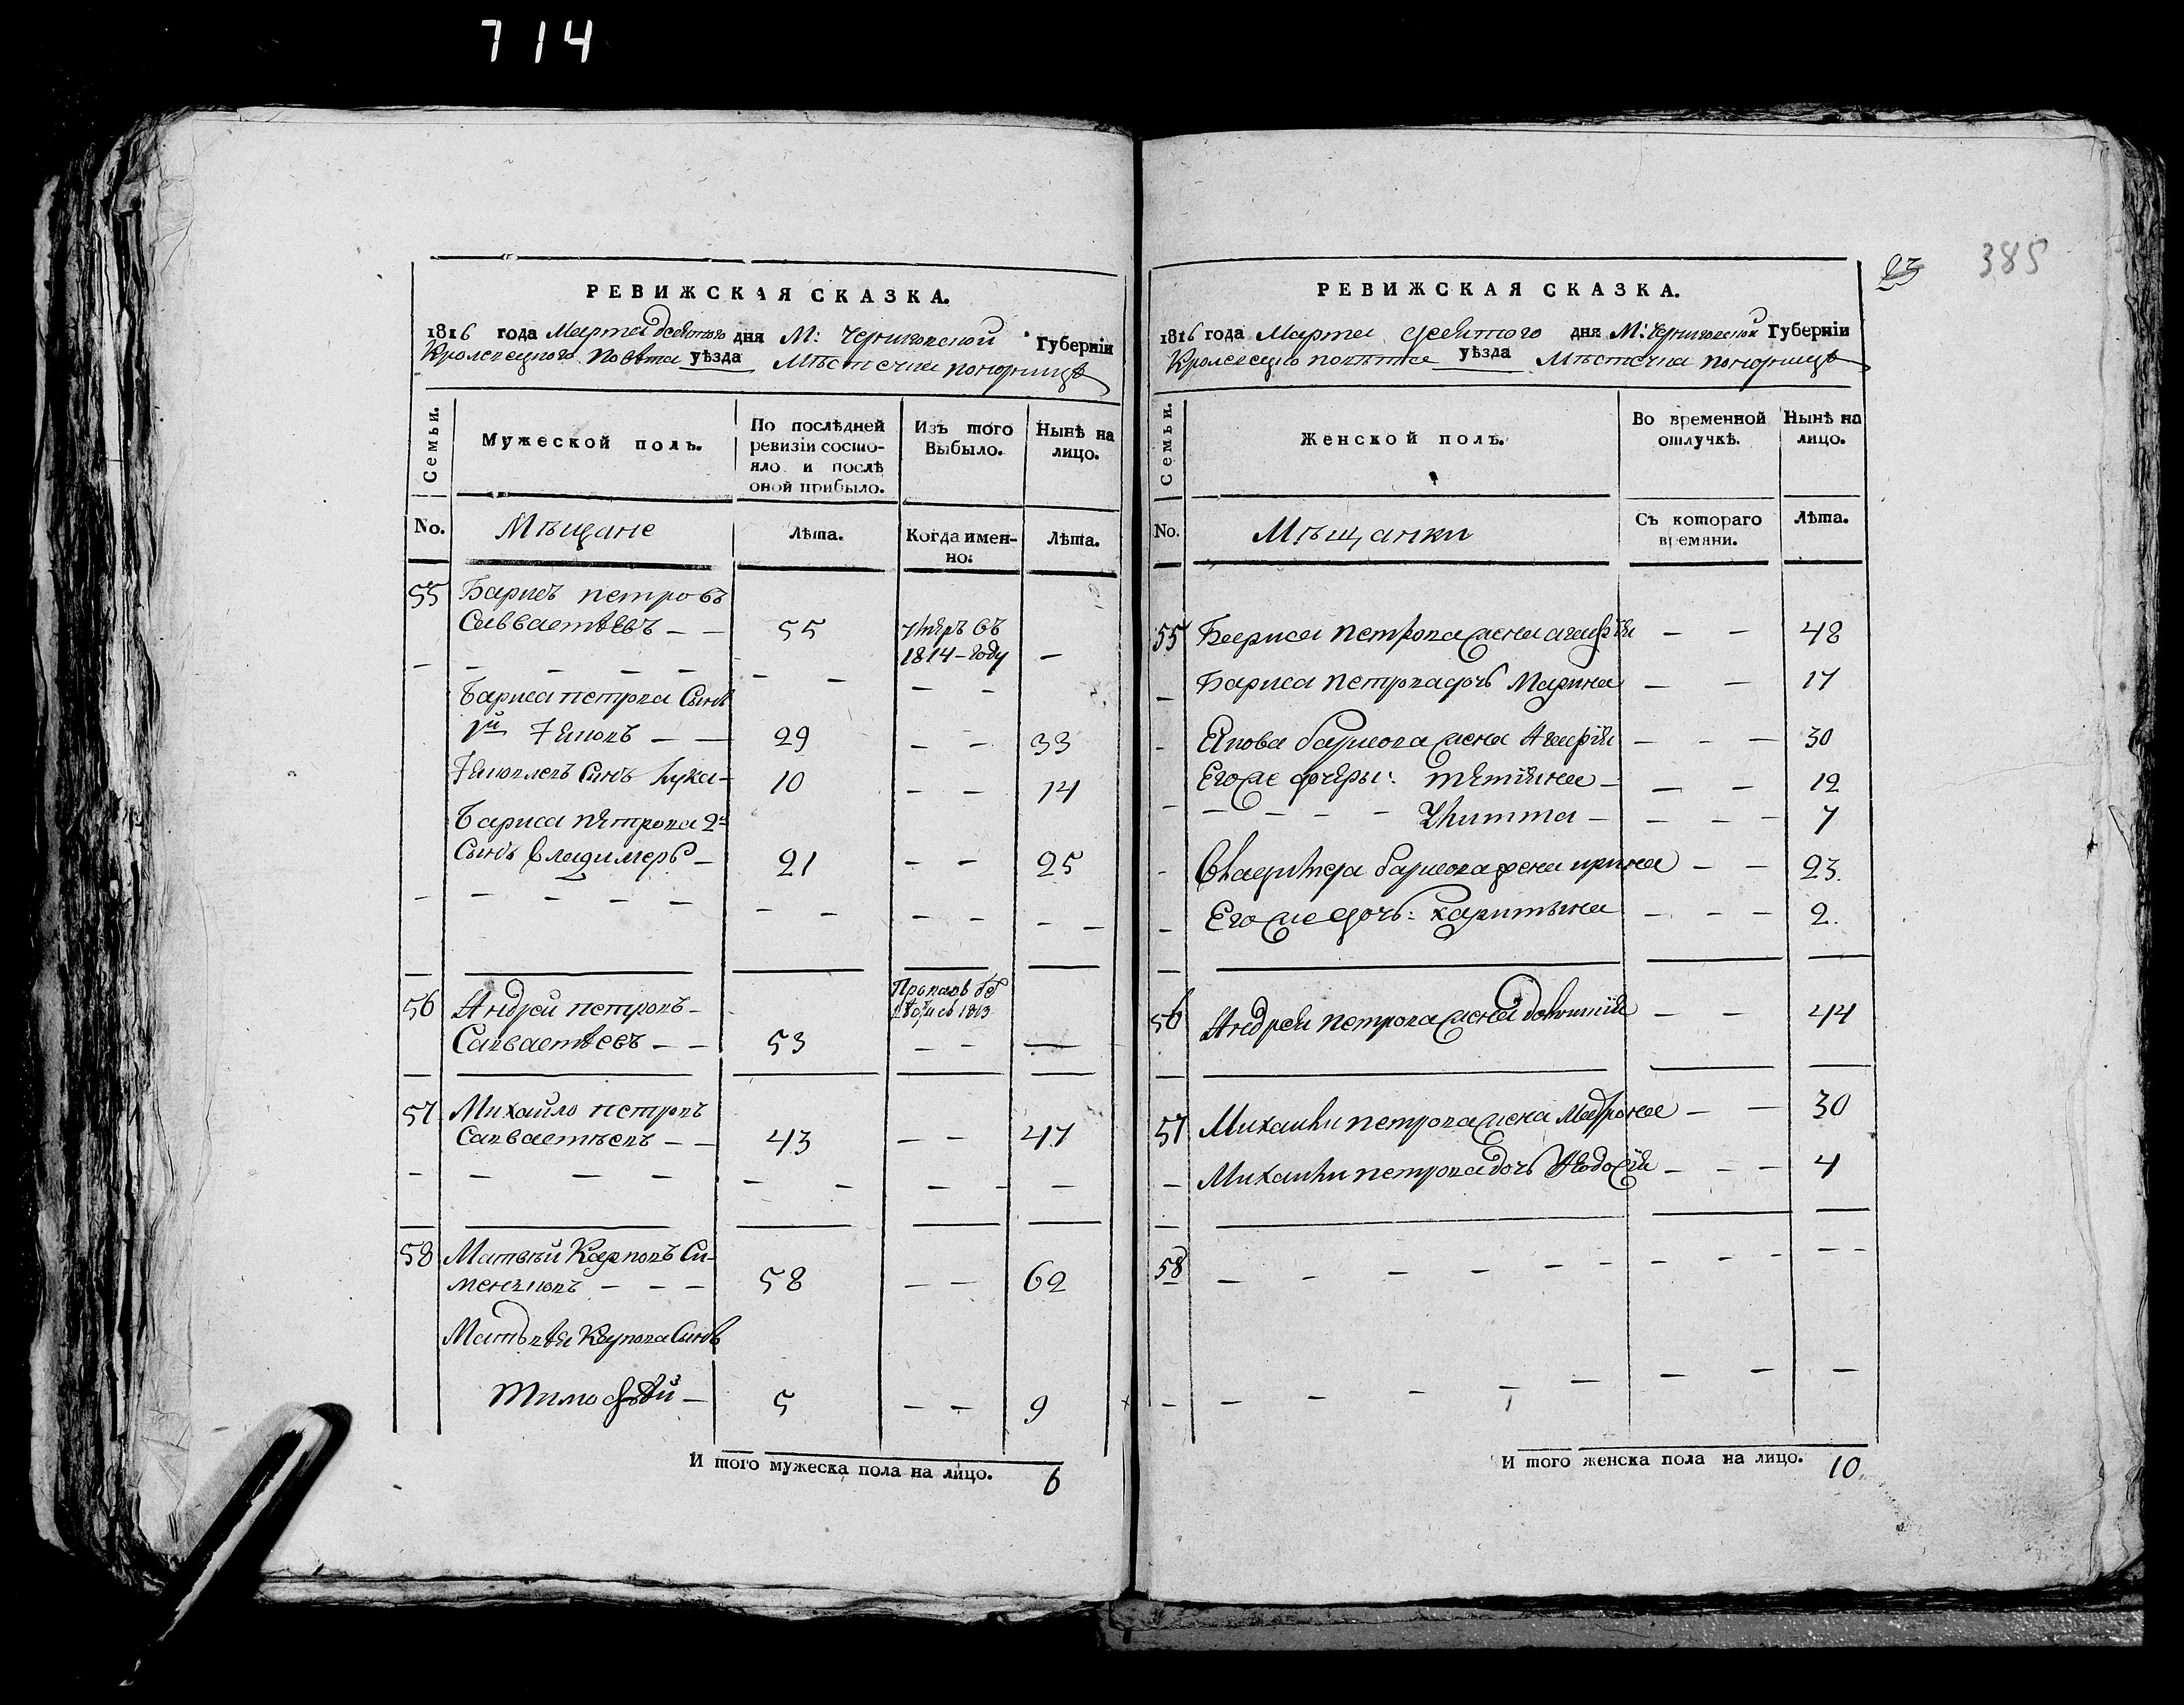 714
РЕВИЖСКАЯ СКАЗКА.
1816 года Марта девятого дня М: Черниговской Губерніи
Кролевецкого повѣта уѣзда Мѣстечка Понорницѣ
Семьи.
Мужеской полъ.
По послѣдней ревизіи состояло и послѣ оной прибыло.
Изъ того Выбыло.
Нынѣ на лицо.
No.
Мѣщане
Лѣта.
Когда именно:
Лѣта.
55 Барисъ петровъ
Савватѣевъ – – 55 умеръ въ
1814 – году –
Бариса петрова Сынъ
1й – – 29 – – 33
Сынъ Лука – 10 – – 14
Бариса петрова 2й
Сынъ владимеръ – 21 – – 25
56 Андрей петровъ –
Савватѣевъ – – 53 – – –
1813
57 Михайло петровъ
Савватѣевъ – – 43 – – 47
58 Матвѣй Карповъ Си-
– – – 58 – – 62
Матвѣя Карпова Сынъ
Тимофѣй – 5 – – 9
И того мужеска пола на лицо. 6
385
23
РЕВИЖСКАЯ СКАЗКА.
1816 года Марта девятого дня М: Черниговской Губерніи
Кролевецко повѣта уѣзда Мѣстечка Понорницѣ
Семьи.
Женской полъ.
Во временной отлучкѣ.
Нынѣ на лицо.
No.
Мѣщанки
Съ котораго времяни.
Лѣта.
55 Бариса петрова жена агафія – – 48
Бариса петрова дочь Марина – – 17
Якова барисова жена Агафія – – – 30
Его же дочеры: тятіяна – – – 12
– – – – Улитта – – – – 7
Владимера барисова жена ирина – – 23.
Его же дочь: харитына – – – 2.
56 Андрея петрова жена – – 44
57 Михайли петрова жена Матрона – – 30
Михайли петрова дочь Ѳеодосія – – – 4
58 – – – – – – – – –
И того женска пола на лицо. 10